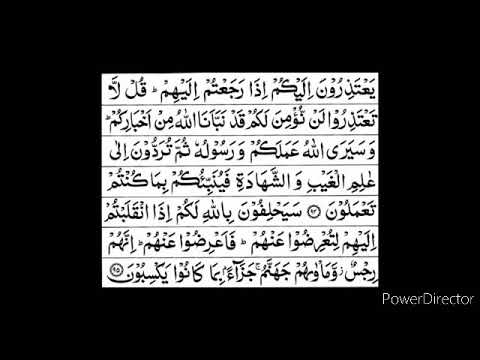 يَعْتَذِرُوْنَ اِلَيْكُمْ اِذَا رَجَعْتُمْ اِلَيْهِمْ ؕ قُلْ لَّا
تَعْتَذِرُوْا لَنْ نُّؤْمِنَ لَكُمْ قَدْ نَبَّاَنَا اللّٰهُ مِنْ اَخْبَارِكُمْ ؕ
وَ سَيَرَى اللّٰهُ عَمَلَكُمْ وَ رَسُوْلُهٗ ثُمَّ تُرَدُّوْنَ اِلٰى
عٰلِمِ الْغَيْبِ وَ الشَّهَادَةِ فَيُنَبِّئُكُمْ بِمَا كُنْتُمْ
تَعْمَلُوْنَ ۝۹۴ سَيَحْلِفُوْنَ بِاللّٰهِ لَكُمْ اِذَا انْقَلَبْتُمْ
اِلَيْهِمْ لِتُعْرِضُوْا عَنْهُمْ ؕ فَاَعْرِضُوْا عَنْهُمْ ؕ اِنَّهُمْ
رِجْسٌ ؗ وَّ مَاْوٰىهُمْ جَهَنَّمُ ۚ جَزَآءًۢ بِمَا كَانُوْا يَكْسِبُوْنَ ۝۹۵
PowerDirector